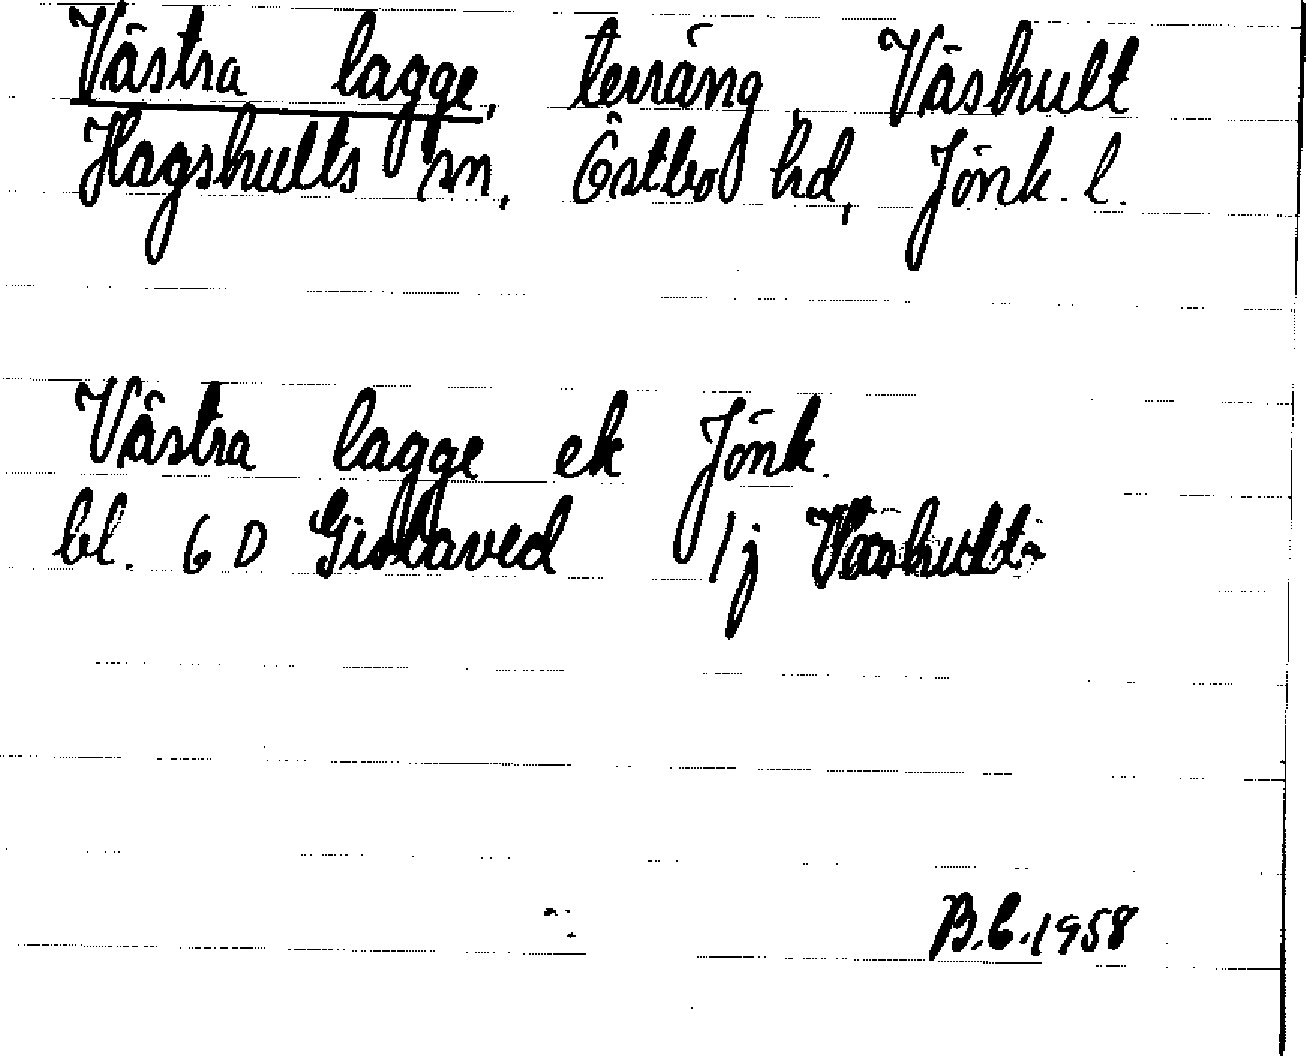 Västra lagge, terräng, Väshult
Hagshults sn, Östbo hd, Jönk. l.
Västra lagge ek Jönk.
bl. 6 D Gislaved 1j
B.E. 1958